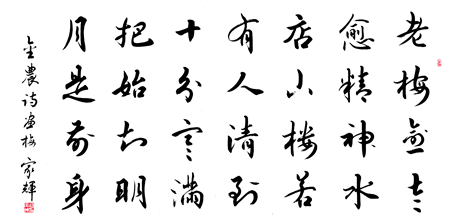 老梅愈老
愈精神水
店山楼若
有人清到
十分寒满
把始知明
月是前身
金農诗画梅 家輝